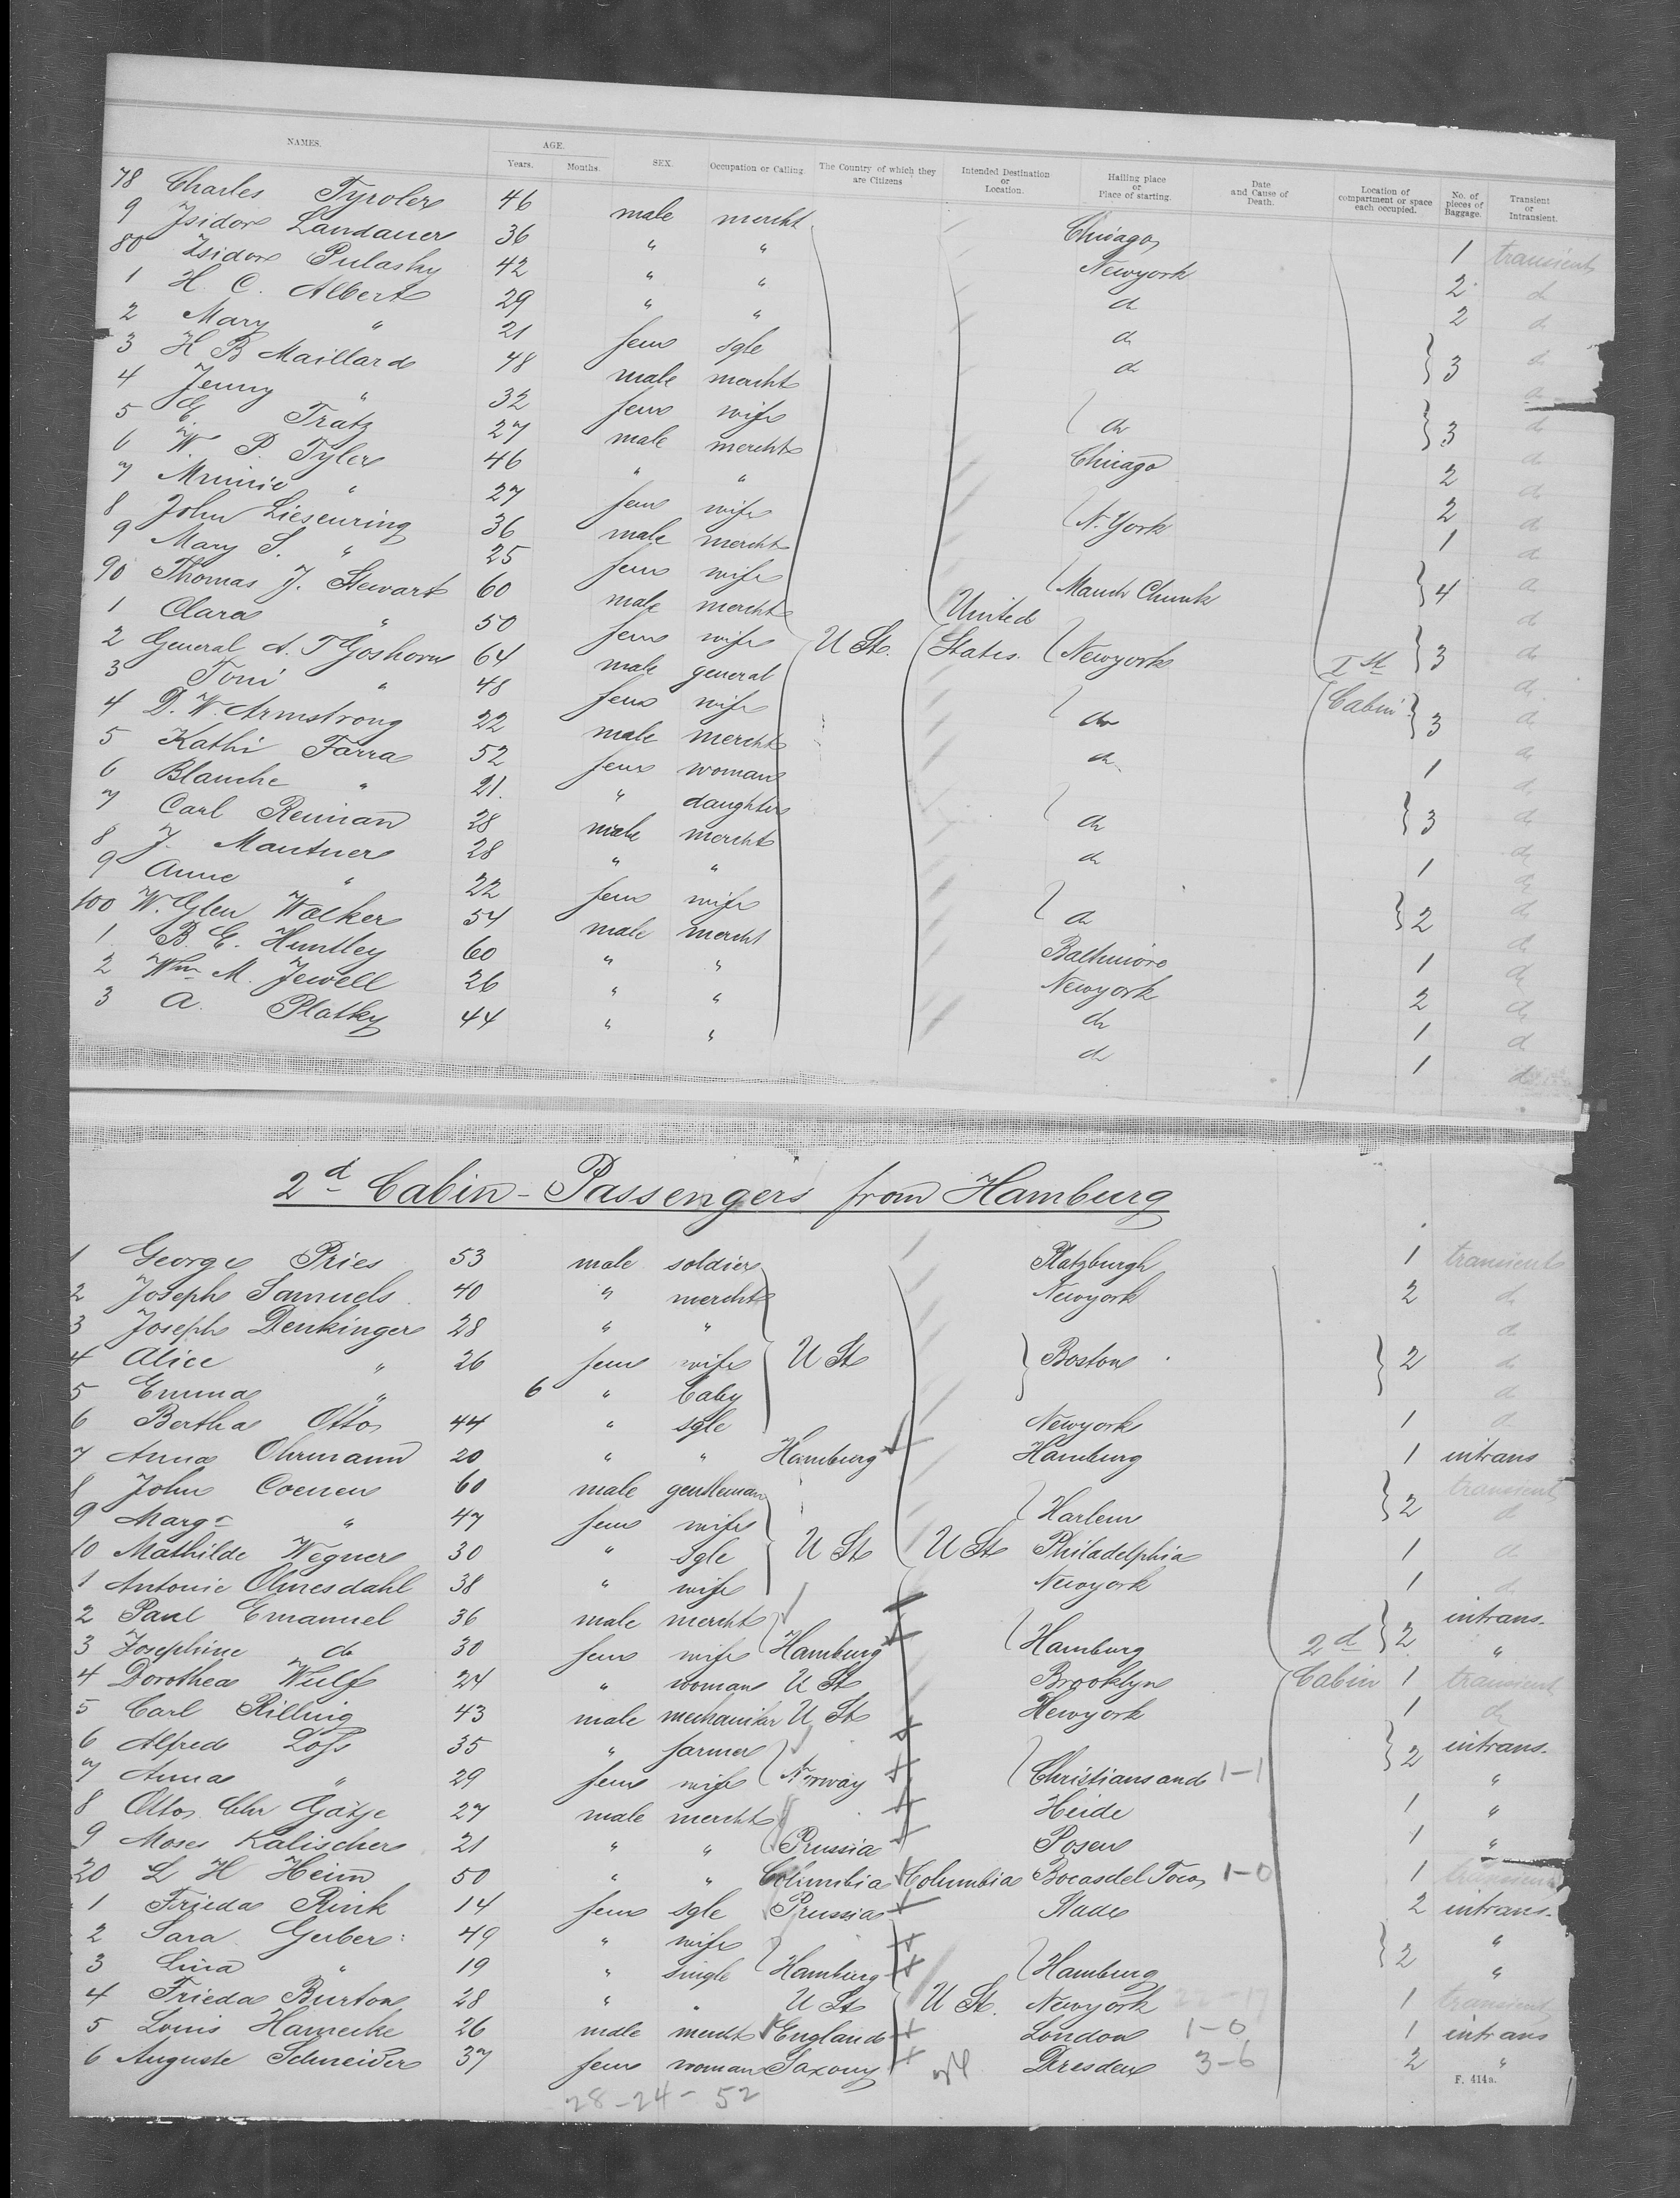 NAMES. AGE. SEX. Occupation or Calling The Country of which they are Citizens Intended Destination or Location. Hailing place or Place of starting. Date and Cause of Death. Location of compartment or space each occupied. No. of pieces of Baggage. Transient or Intransient.
Years. Months.
78 Charles Tyroler 46 male mercht Chicago 1 transient
9 Isidor Landauer 36 " " Newyork 2 d
80 Isidor Pulasky 42 " " d 2 d
1 H. C. Albert 29 " " d d
2 Mary " 21 fem sgle d 3
3 H B Maillard 48 male mercht d
4 Jenny " 32 fem wife d 3 d
5 E. Tratz 27 male mercht Chicago 2 d
6 W. P. Tyler 46 " " d
7 Minnie " 27 fem wife N. York 2 d
8 John Liesenring 36 male mercht 1 d
9 Mary S. " 25 fem wife Mauch Chunk 4 d
90 Thomas J. Stewart 60 male mercht United d
1 Clara " 50 fem wife U St. States. Newyork 3 d
2 General A. T Goshorn 64 male general Ist d
3 Toni " 48 fem wife d Cabin 3 d
4 D. W Armstrong 22 male mercht d 1 d
5 Kathi Farra 52 fem woman d
6 Blanche " 21. " daughter d 3 d
7 Carl Reiman 28 male mercht d 1 d
8 J. Mautner 28 " " d
9 Anne " 22 fem wife d 2 d
100 W. Glen Walker 54 male mercht Baltimore 1 d
1 B. E. Huntley 60 " " Newyork 2 d
2 Wm M. Jewell 26 " " d 1 d
3 A. Platky 44 " " d 1 d
2d Cabin-Passengers from Hamburg
1 George Pries 53 male soldier Platzburgh 1 transient
2 Joseph Samuels 40 " mercht Newyork 2 d
3 Joseph Denkinger 28 " " d
4 Alice " 26 fem wife U St Boston 2 d
5 Emma " 6 " baby d
6 Bertha Otto 44 " sgle Newyork 1 d
7 Anna Ohrmann 20 " " Hamburg Hamburg 1 intrans
8 John Coenen 60 male gentleman transient
9 Margr " 47 fem wife Harlem 2 d
10 Mathilde Wegner 30 " Sgle U St U St Philadelphia 1 d
1 Antonie Olmesdahl 38 " wife Newyork 1 d
2 Paul Emanuel 36 male mercht intrans.
3 Josephine do 30 fem wife Hamburg Hamburg 2d 2 "
4 Dorothea Wulf 24 " woman U St Brooklyn Cabin 1 transient
5 Carl Rilling 43 male mechaniker U St Newyork 1 d
6 Alfred Loss 35 " farmer 2 intrans.
7 Anna " 29 fem wife Norway Christiansand 1-1 "
8 Otto Chr Gätje 27 male mercht Heide 1 "
9 Moses Kalischer 21 " " Prussia Posen 1 "
20 L H Heim 50 " " Columbia Columbia Bocasdel Toro 1-0 1 transient
1 Frieda Rink 14 fem sgle Prussia Stade 2 intrans.
2 Sara Gerber 49 " wife "
3 Lina " 19 " single Hamburg Hamburg 2 "
4 Frieda Burton 28 " " U St U St. Newyork 22-17 1 transient
5 Louis Harnecke 26 male mercht England London 1-0 1 intrans
6 Auguste Schneider 37 fem woman Saxony Dresden 3-6 2 "
F. 414a.
28-24-52